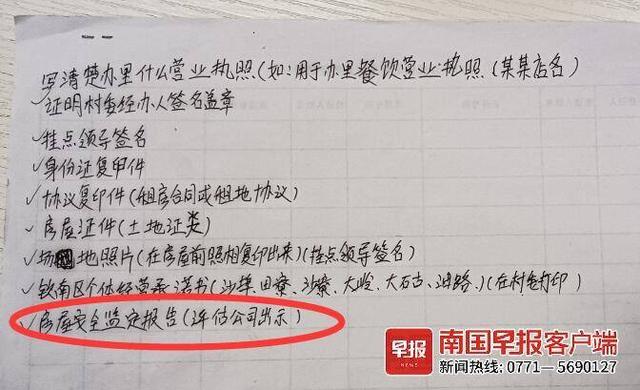 写清楚办里什么营业执照(如:用于办里餐饮营业执照(某某店名)
✓证明村委经办人签名盖章
✓挂点领导签名
✓身份证复印件
✓协议复印件(租房合同或租地协议)
✓房屋证件(土地证类)
✓场地照片(在房屋前照相复印出来)(挂点领导签名)
✓钦南区个体经营承诺书(沙埠、田寮、沙寮、大岭、大石古、)(在村自打印)
✓房屋安全监定报告(评估公司出示)
早报 南国早报客户端
新闻热线:0771—5690127